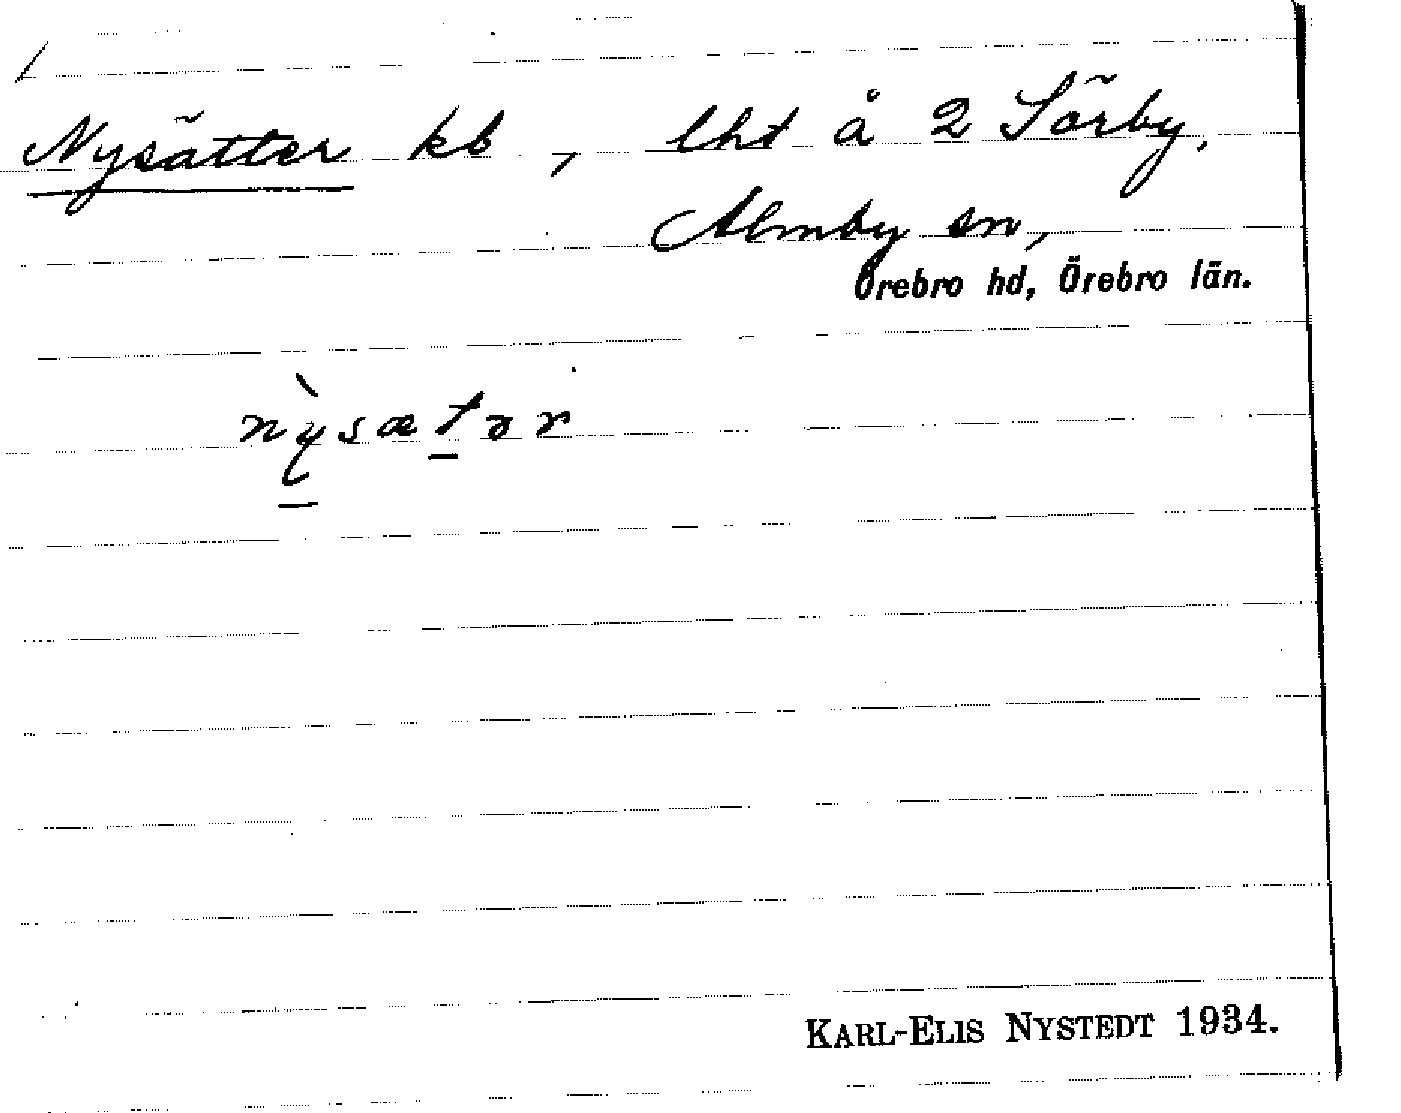 Nysätter kb, lht å 2 Sörby,
Almby sn,
Örebro hd, Örebro län.
nỳsætər
KARL-ELIS NYSTEDT 1934.